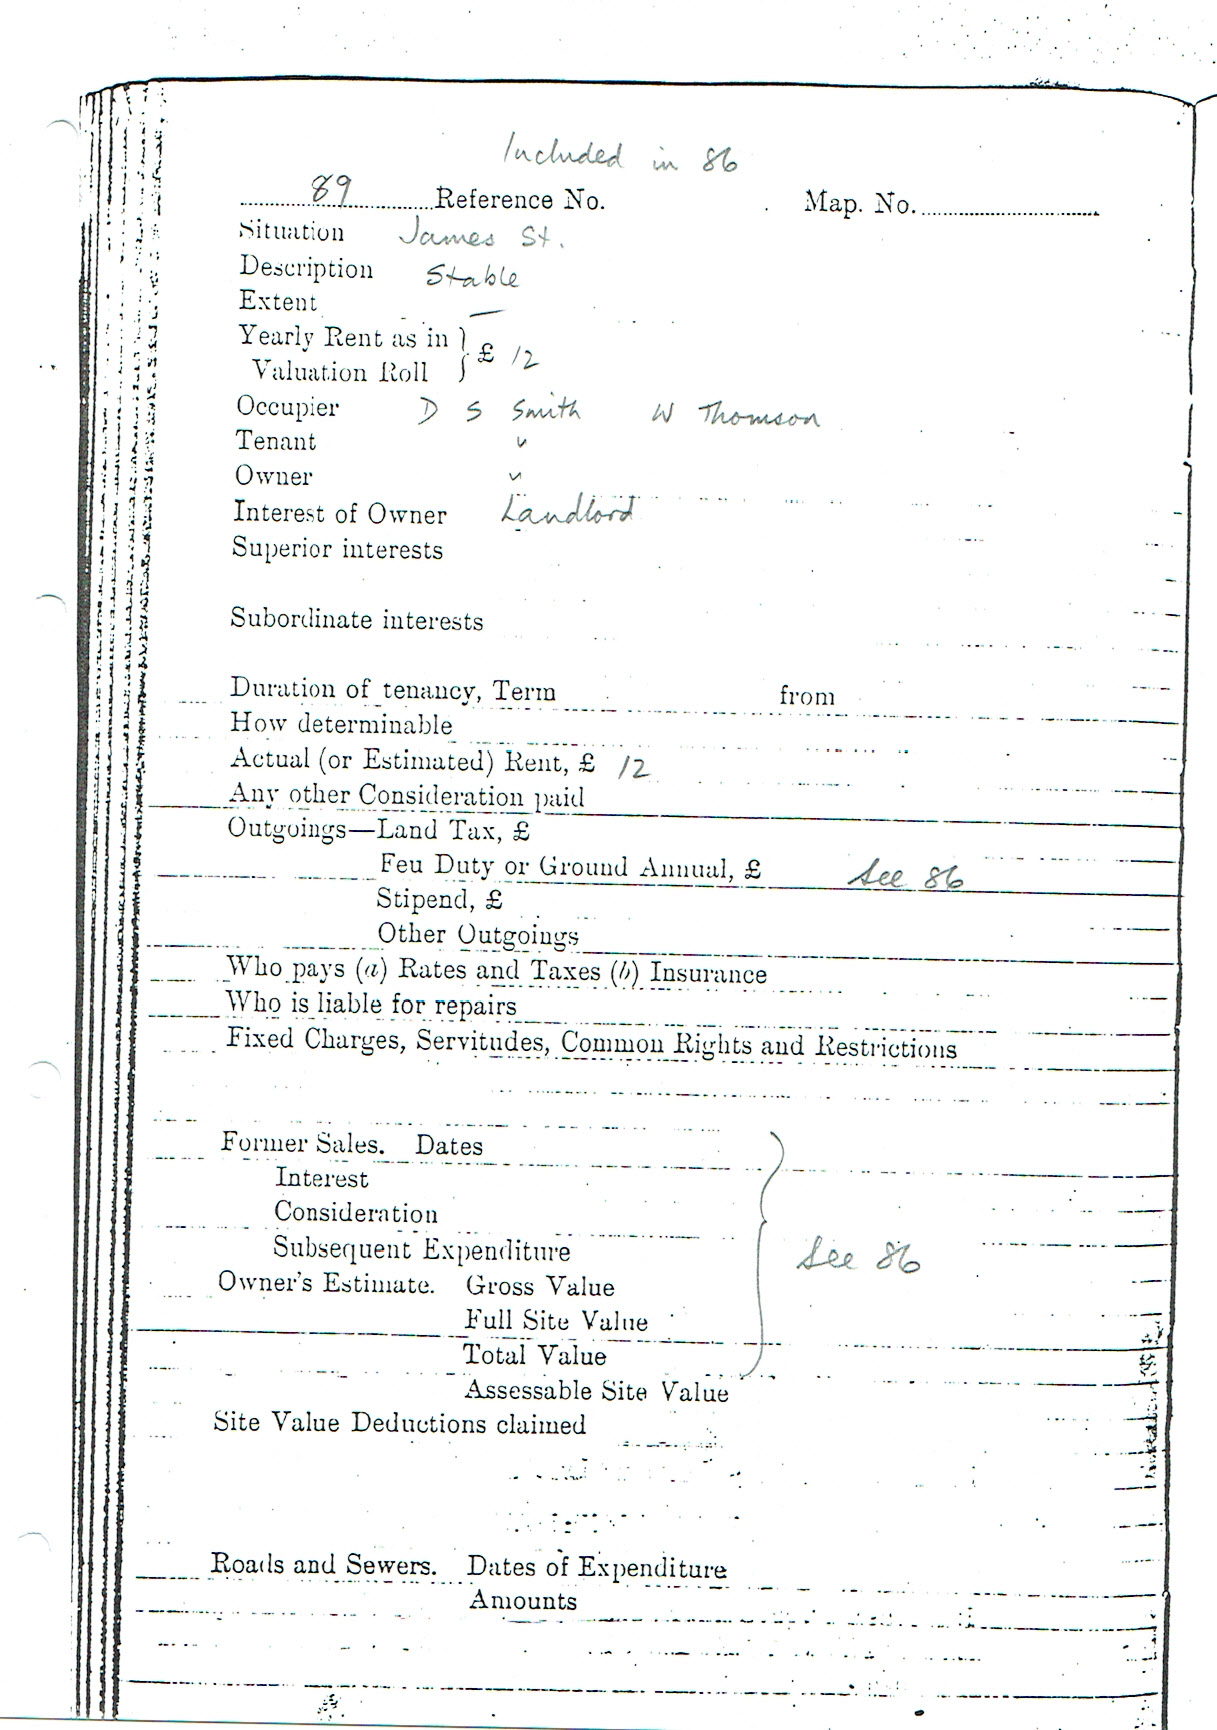 Included in 86
89 Reference No. Map. No.
Situation James St.
Description Stable
Extent —
Yearly Rent as in
Valuation Roll } £ 12
Occupier D S Smith W Thomson
Tenant "
Owner "
Interest of Owner Landlord
Superior interests
Subordinate interests
Duration of tenancy, Term from
How determinable
Actual (or Estimated) Rent, £ 12
Any other Consideration paid
Outgoings—Land Tax, £
Feu Duty or Ground Annual, £ See 86
Stipend, £
Other Outgoings
Who pays (a) Rates and Taxes (b) Insurance
Who is liable for repairs
Fixed Charges, Servitudes, Common Rights and Restrictions
Former Sales. Dates
Interest
Consideration
Subsequent Expenditure
See 86
Owner's Estimate. Gross Value
Full Site Value
Total Value
Assessable Site Value
Site Value Deductions claimed
Roads and Sewers. Dates of Expenditure
Amounts